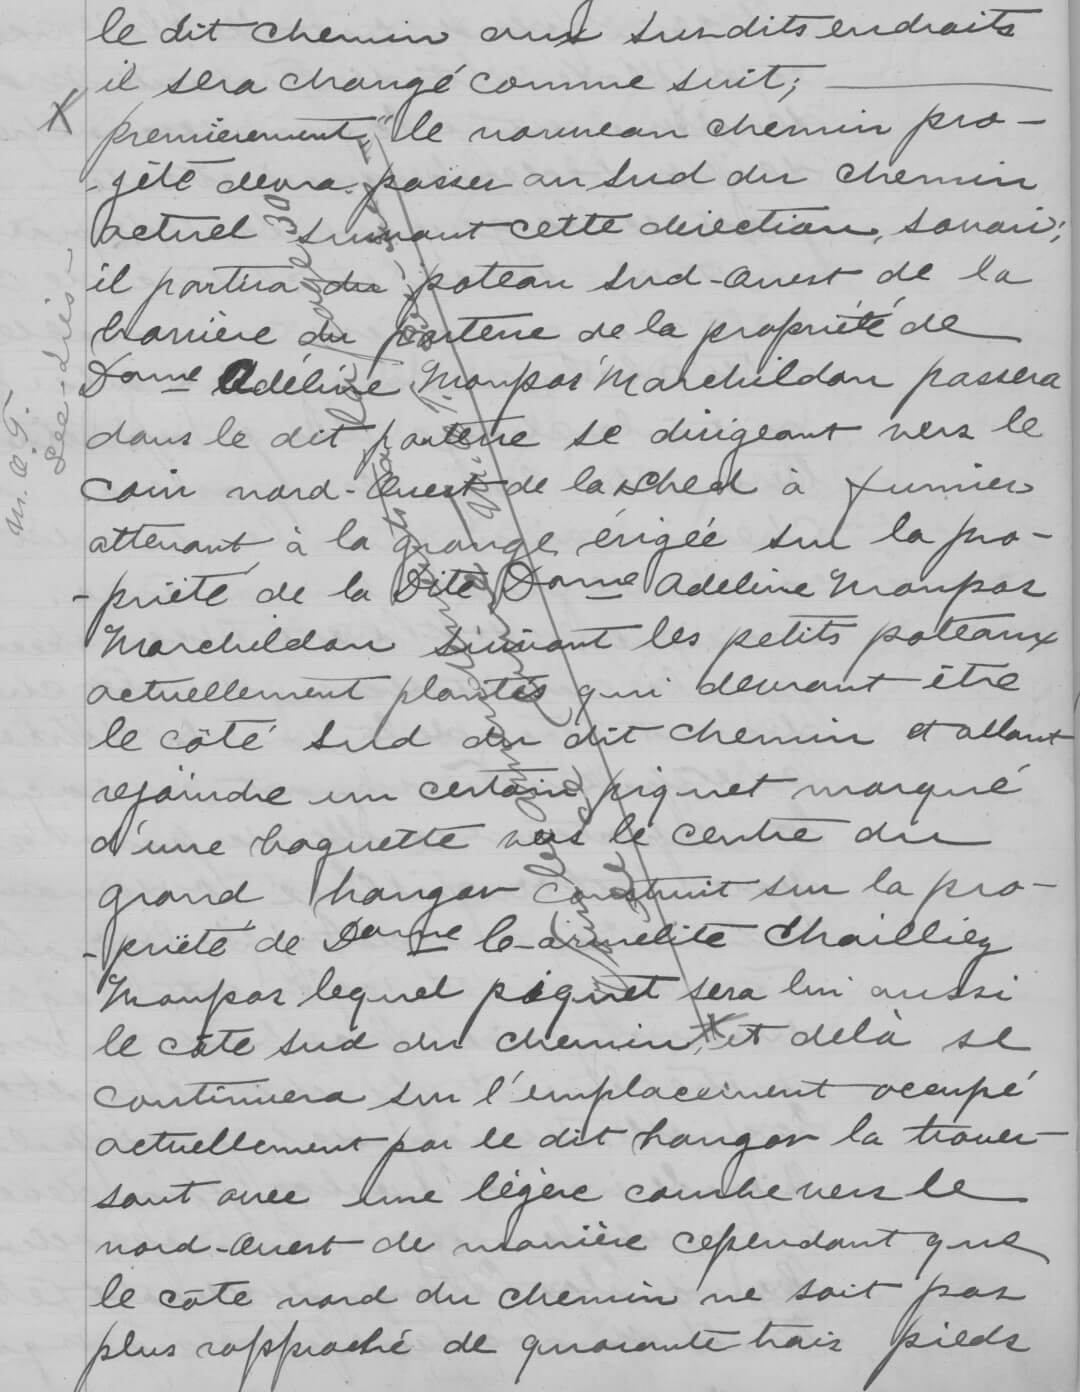 le dit chemin aux susdits endroits
il sera changé comme suit;
premièrement, le nouveau chemin pro-
-jété devra passer au sud du chemin
actuel suivant cette direction, savoir;
il partira du poteau sud-ouest de la
barrière du parterre de la propriété de
Dame Adéline Maupas Marchildon passera
dans le dit parterre se dirigeant vers le
coin nord-ouest de la shed à fumier
attenant à la grange érigée sur la pro-
-priété de la dite Dame Adeline Maupas
Marchildon suivant les petits poteaux
actuellement plantés qui devront être
le côté sud du dit chemin et allant
rejoindre un certain piquet marqué
d'une baguette vers le centre du
grand hangar construit sur la pro-
-priété de Dame Carmelite Chailliez
Maupas lequel piquet sera lui aussi
le côté sud du chemin, et delà se
continuera sur l'emplacement occupé
actuellement par le dit hangar la traver-
sant avec une légère courbe vers le
nord-ouest de manière cependant que
le côté nord du chemin ne soit pas
plus rapproché de quarante trois pieds
M. O. T.